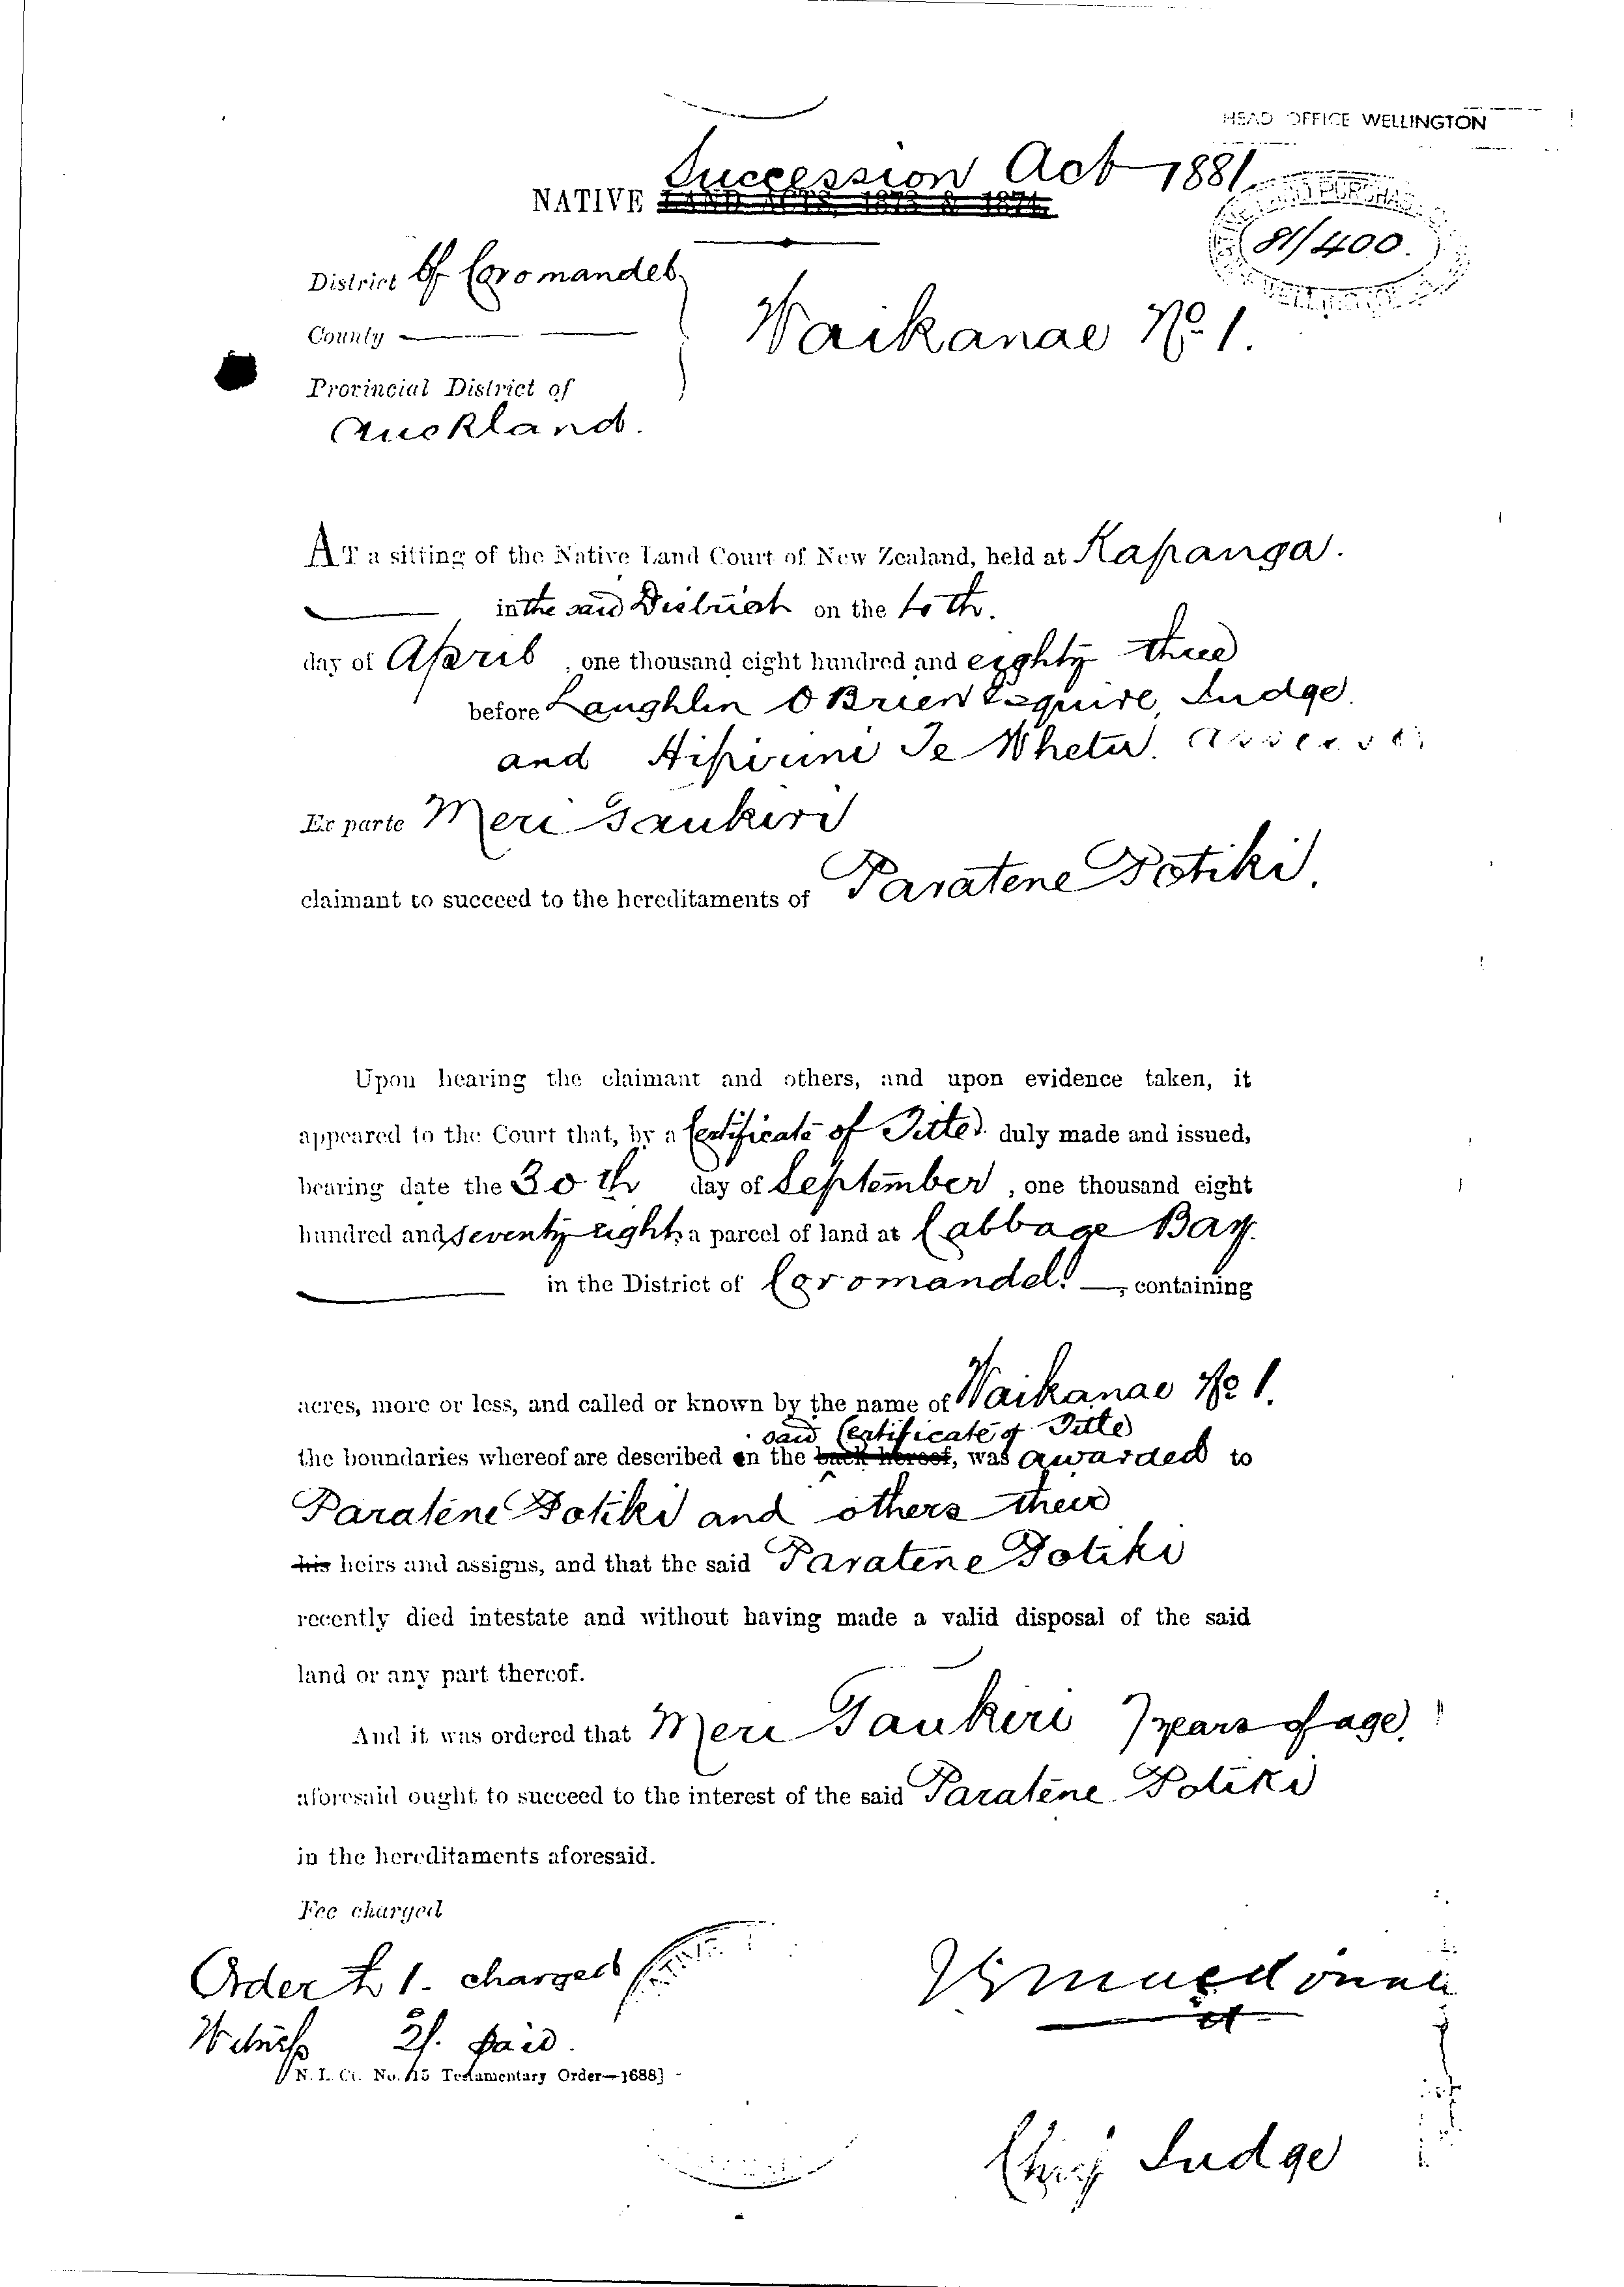 HEAD OFFICE WELLINGTON
Succession Act 1881
NATIVE LAND ACTS, 1873 & 1874.
81/400.
District of Coromandel
County
Waikanae No. 1.
Provincial District of
Auckland.
AT a sitting of the Native Land Court of New Zealand, held at Kapanga.
in the said District on the
day of April, one thousand eight hundred and eighty three
before Laughlin O'Brien Esquire, Judge.
and Te Wheta. Assessor
Ex parte Meri Taukiri
claimant to succeed to the hereditaments of Paratene Potiki.
Upon hearing the claimant and others, and upon evidence taken, it
appeared to the Court that, by a Certificate of Title duly made and issued,
bearing date the 30th day of September, one thousand eight
hundred and seventy eight, a parcel of land at Cabbage Bay.
in the District of Coromandel, containing
acres, more or less, and called or known by the name of Waikanae No 1.
said Certificate of Title
the boundaries whereof are described on the back hereof, was awarded to
Paratene Potiki and others their
his heirs and assigns, and that the said Paratene Potiki
recently died intestate and without having made a valid disposal of the said
land or any part thereof.
And it was ordered that Meri Taukiri 7 years of age,
aforesaid ought to succeed to the interest of the said Paratene Potiki
in the hereditaments aforesaid.
Fee charged
Order £1. charged
Witness 2/. paid.
N. L. Ct. No. 15 Testamentary Order—1688]
Chief Judge